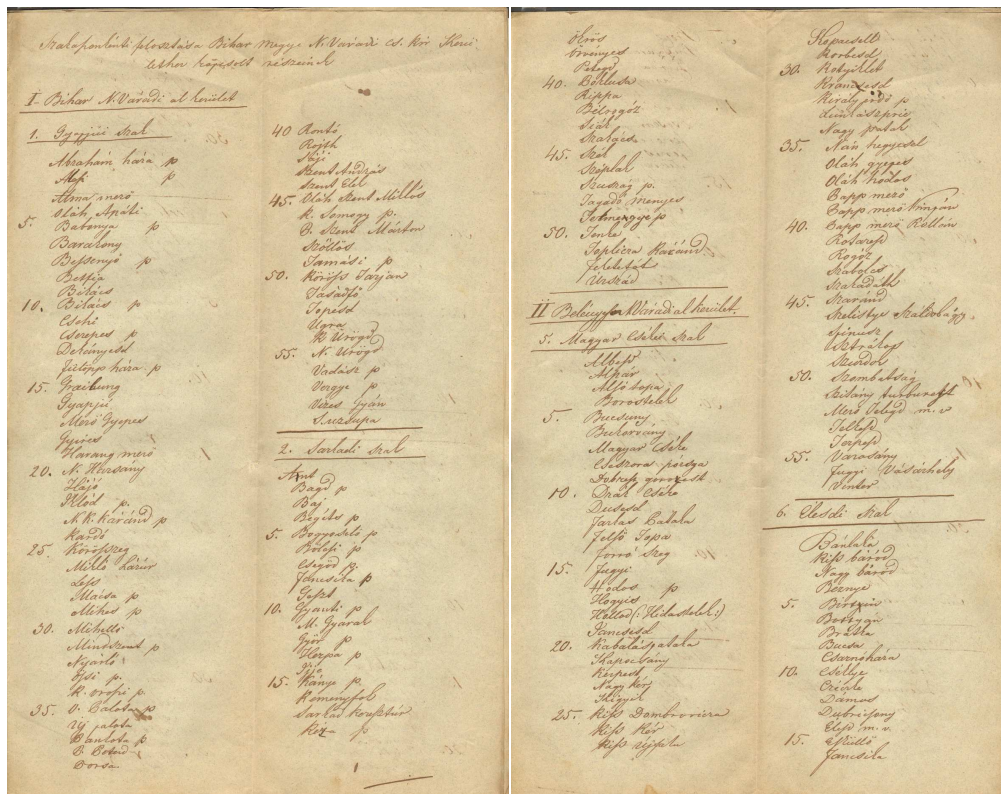 Szakaponkénti felosztása Bihar megye N. Váradi cs. kir. Kerü
lethez kapcsolt részeinek
I. Bihar N. Váradi al kerület
1. Gyapjúi szak
Ábrahám hára p
Apsi p
Alma mező
Oláh Apáti
5. Batonya p
Barakony
Bessenyő p
Betfia
Bikács
10. Bikács p
Csehi
Cserepes p
Dekányesd
Fülöpp hára p
15. Graibung
Gyapjú
Mező Gyepes
Gyires
Harang mező
20. N. Harsány
Hájó
Iklód p.
N. K. Káránd p
Kardó
25. Körösszeg
Mikló Lázur
Less
Mácsa p
Mihos p
30. Mihelló
Mindszent p
Nyárló
Ősi p.
K. orosi p.
35. O. Palota p
Új palota
Pankota p
Borsa.
40 Rontó
Rojth
Sáji
Szent András
Szent Elek
45. Oláh Szent Miklós
K. Somogy p.
B. Szent Márton
Szöllős
Tamási p
50. Köröss Tarján
Tasádfő
Topesd
Ugra
K Ürögd
55. N. Ürögd
Vadász p
Verzye p
Vizes Gyán
Suzsupa
2. Sarkadi szak
Ant
Bagd p
Baj
Bégités p
5. Bogyoszló p
Bölesi p
Csegőd p.
Jancsika p
Geszt
10. Gyanti p
M. Gyarak
Győr p
Hospa p
Iljo
15. Kánya p
Keményfok
Sarkad Keresztúr
Kéz p
ökrös
örvényes
Petegd
40. Pokлusa
Rippa
Bélrogóz
Siád
Szakács
45. Szék
Széplak
Szuszag p.
Tagadó menyes
Tetmengye p
50. Tenke
Toplicza Káránd
Feketetót
Urszád
II Belényes N. Várad al kerület.
5. Magyar Csékei szak
Albesd
Alpár
Alsó topa
Borostelek
5. Bucsuny
Bukorvány
Magyar Cséke
Cseszora poszga
Dubrest gorozest
10. Drák Cséke
Dusesd
Farkas Patak
Felső Topa
Forró Szeg
15. Fugyi
Hodos p
Hogyis
Hollod (: Hidastelek :)
Jancsesd
20. Kabaláspataka
Kapocsány
Kerpest
Nagy Kér
Kígyik
25. Kiss Dombrovicza
Kiss Kér
Kiss újfalu
Kopacsel
Korbesd
30. Kotyiklet
Kráncsesd
Király jódó p
Nagy patak
35. Nán hegyesel
Oláh gyepes
Oláh Hodos
Papp mező
Papp mező Kimpán
40. Papp mező Valáni
Rotaresd
Rogoz
Szabolcs
Szakadát
45. Szaránd
Szelistye Szaldobágy
Spinusz
Sztrákos
Szurdok
50. Szombatság
Szitány turburest
Mező Telegd m. v
Telkesd
Terpesd
55. Varasány
Fugyi Vásárhely
Vinter
6. Élesdi szak
Bánlaka
Kiss báród
Nagy báród
Beznye
5. Birtyin
Bottyán
Brátka
Bucsa
Csarnóháza
10. Cséklye
Czécske
Dámos
Dubricsony
Élesd m. v.
15. Eskülő
Jancsika